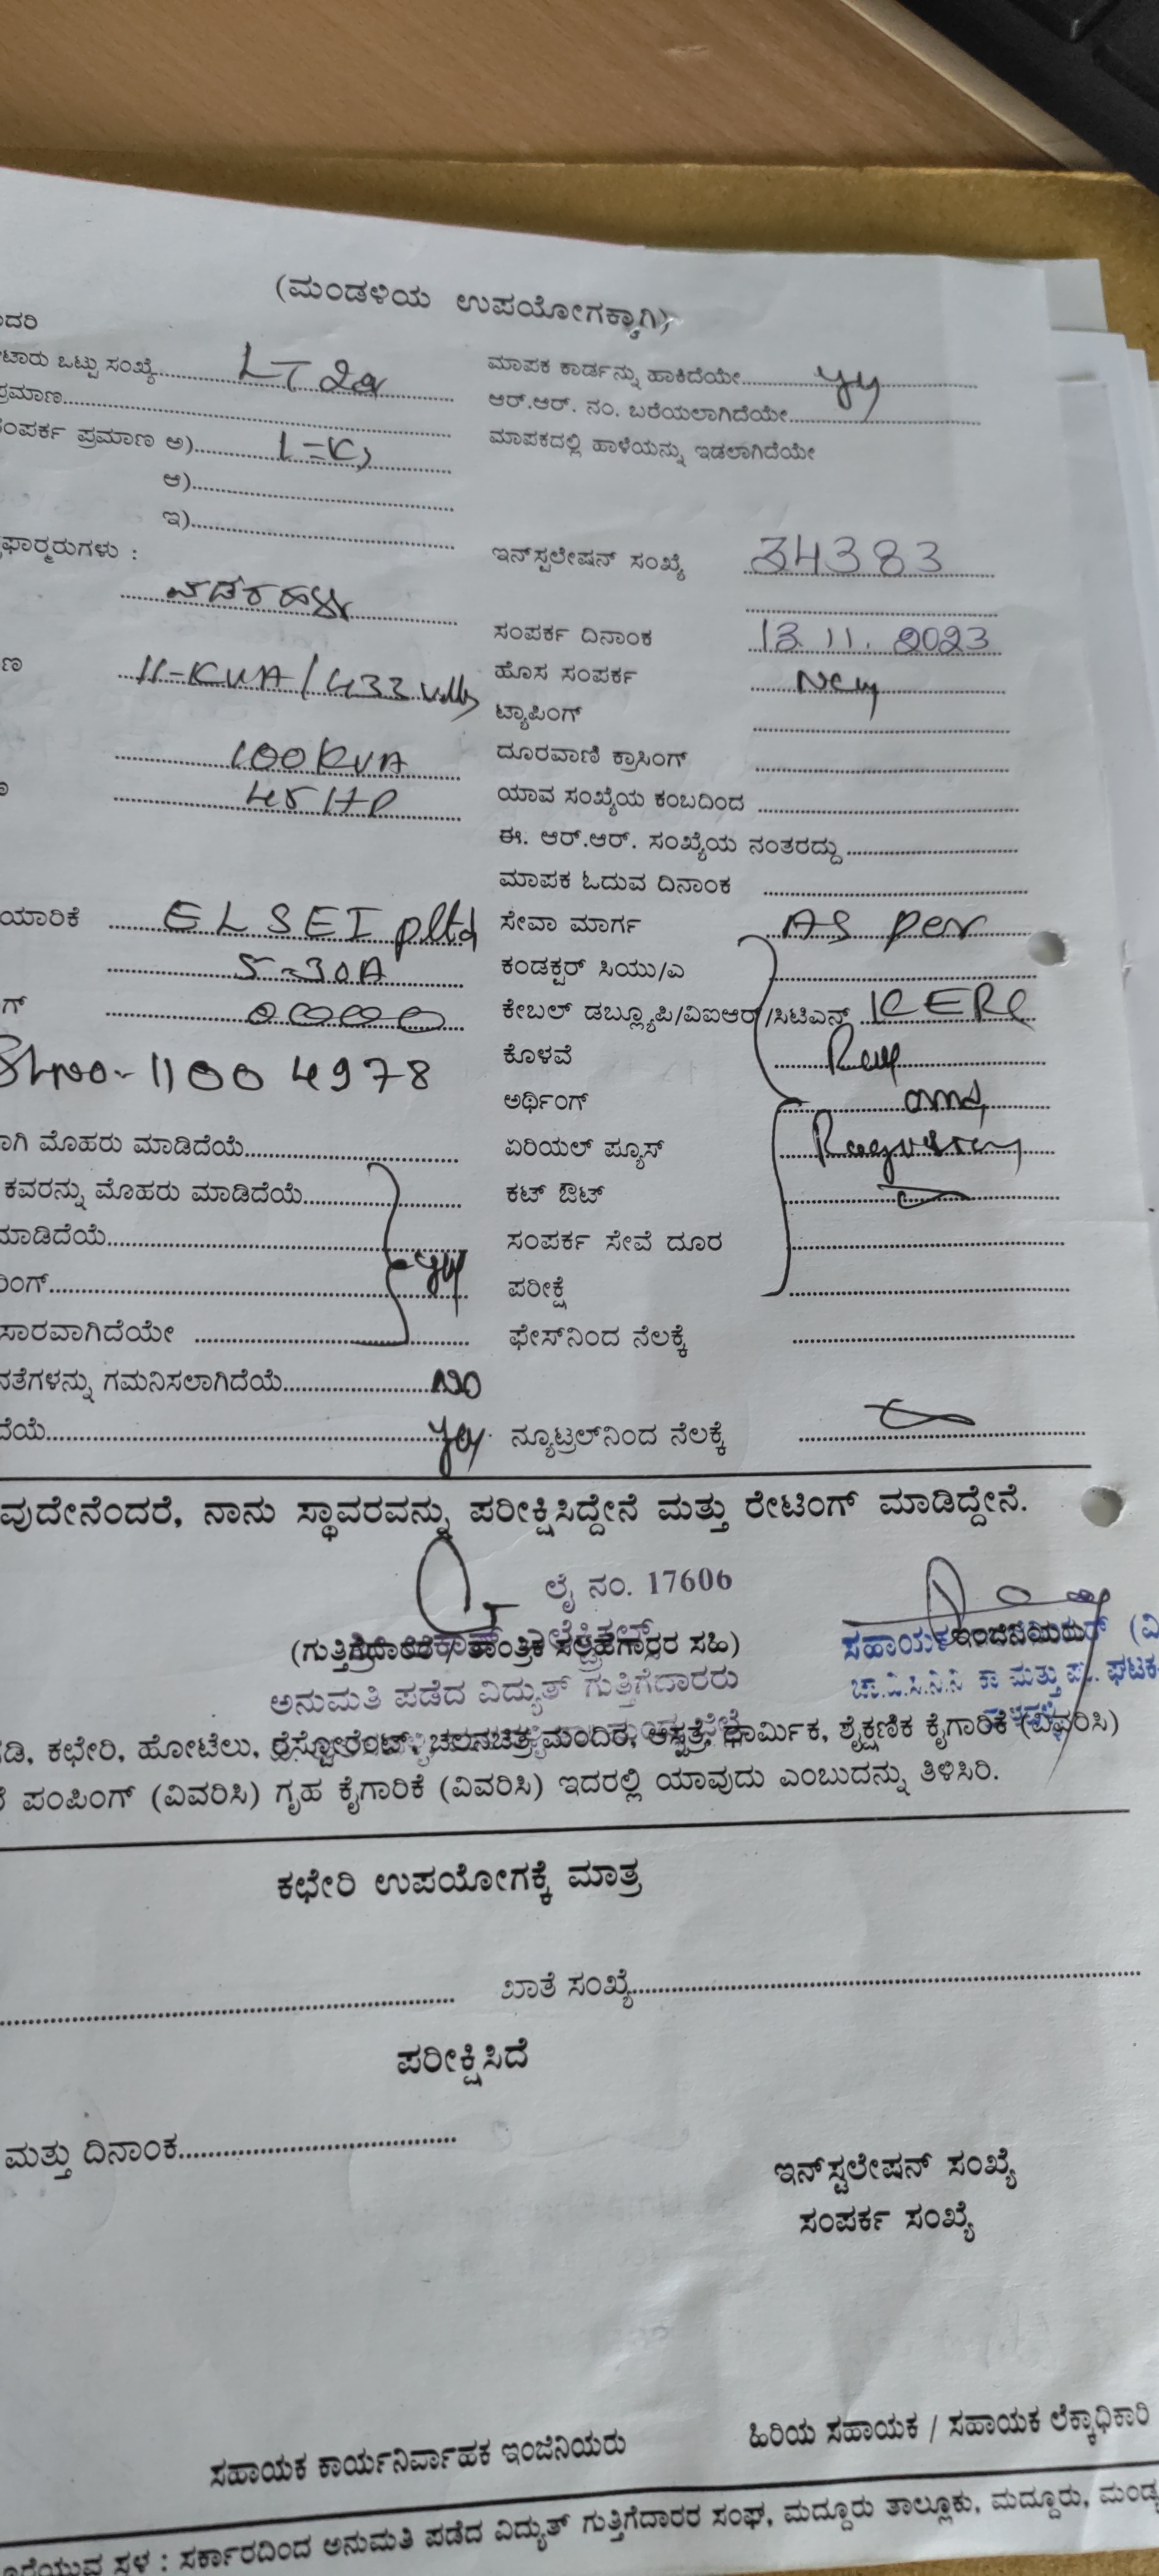 (ಮಂಡಳಿಯ ಉಪಯೋಗಕ್ಕಾಗಿ)
ದರಿ
ಟಾರು ಒಟ್ಟು ಸಂಖ್ಯೆ LT 2a
ಮಾಪಕ ಕಾರ್ಡನ್ನು ಹಾಕಿದೆಯೇ
ಪ್ರಮಾಣ
ಆರ್.ಆರ್. ನಂ. ಬರೆಯಲಾಗಿದೆಯೇ
ಸಂಪರ್ಕ ಪ್ರಮಾಣ ಅ)
ಮಾಪಕದಲ್ಲಿ ಹಾಳೆಯನ್ನು ಇಡಲಾಗಿದೆಯೇ
ಆ)
ಇ)
ಫಾರ್ಮರುಗಳು :
ಇನ್‌ಸ್ಟಲೇಷನ್ ಸಂಖ್ಯೆ 34383
ಸಂಪರ್ಕ ದಿನಾಂಕ 13.11.2023
11-KVA/433 volts
ಹೊಸ ಸಂಪರ್ಕ New
ಟ್ಯಾಪಿಂಗ್
100 KVA
ದೂರವಾಣಿ ಕ್ರಾಸಿಂಗ್
45 HP
ಯಾವ ಸಂಖ್ಯೆಯ ಕಂಬದಿಂದ
ಈ. ಆರ್.ಆರ್. ಸಂಖ್ಯೆಯ ನಂತರದ್ದು
ಮಾಪಕ ಓದುವ ದಿನಾಂಕ
ಯಾರಿಕೆ
ಸೇವಾ ಮಾರ್ಗ AS per
5-30A
ಕಂಡಕ್ಟರ್ ಸಿಯು/ಎ
ಗ್ 00000
ಕೇಬಲ್ ಡಬ್ಲ್ಯೂಪಿ/ವಿಐಆರ್/ಸಿಟಿಎನ್ KERC
Slno- 11004978
ಕೊಳವೆ
ಅರ್ಥಿಂಗ್ and
ಾಗಿ ಮೊಹರು ಮಾಡಿದೆಯೆ
ಏರಿಯಲ್ ಪ್ಯೂಸ್
ಕವರನ್ನು ಮೊಹರು ಮಾಡಿದೆಯೆ
ಕಟ್ ಔಟ್
ಮಾಡಿದೆಯೆ
ಸಂಪರ್ಕ ಸೇವೆ ದೂರ
ರಿಂಗ್
ಪರೀಕ್ಷೆ
ಸಾರವಾಗಿದೆಯೇ
ಫೇಸ್‌ನಿಂದ ನೆಲಕ್ಕೆ
ನತೆಗಳನ್ನು ಗಮನಿಸಲಾಗಿದೆಯೆ NO
ದೆಯೆ yes
ನ್ಯೂಟ್ರಲ್‌ನಿಂದ ನೆಲಕ್ಕೆ
ವುದೇನೆಂದರೆ, ನಾನು ಸ್ಥಾವರವನ್ನು ಪರೀಕ್ಷಿಸಿದ್ದೇನೆ ಮತ್ತು ರೇಟಿಂಗ್ ಮಾಡಿದ್ದೇನೆ.
ಲೈ ನಂ. 17606
(ಗುತ್ತಿಗೆದಾರರ / ತಾಂತ್ರಿಕ ಸಲಹೆಗಾರರ ಸಹಿ)
ಸಹಾಯಕ ಇಂಜಿನಿಯರು
ಅನುಮತಿ ಪಡೆದ ವಿದ್ಯುತ್ ಗುತ್ತಿಗೆದಾರರು
ಡಿ, ಕಛೇರಿ, ಹೋಟೆಲು, ರೆಸ್ಟೋರೆಂಟ್, ಚಲನಚಿತ್ರ ಮಂದಿರ, ಆಸ್ಪತ್ರೆ, ಧಾರ್ಮಿಕ, ಶೈಕ್ಷಣಿಕ ಕೈಗಾರಿಕೆ (ವಿವರಿಸಿ)
ಪಂಪಿಂಗ್ (ವಿವರಿಸಿ) ಗೃಹ ಕೈಗಾರಿಕೆ (ವಿವರಿಸಿ) ಇದರಲ್ಲಿ ಯಾವುದು ಎಂಬುದನ್ನು ತಿಳಿಸಿರಿ.
ಕಛೇರಿ ಉಪಯೋಗಕ್ಕೆ ಮಾತ್ರ
ಖಾತೆ ಸಂಖ್ಯೆ
ಪರೀಕ್ಷಿಸಿದೆ
ಮತ್ತು ದಿನಾಂಕ
ಇನ್‌ಸ್ಟಲೇಷನ್ ಸಂಖ್ಯೆ
ಸಂಪರ್ಕ ಸಂಖ್ಯೆ
ಸಹಾಯಕ ಕಾರ್ಯನಿರ್ವಾಹಕ ಇಂಜಿನಿಯರು
ಹಿರಿಯ ಸಹಾಯಕ / ಸಹಾಯಕ ಲೆಕ್ಕಾಧಿಕಾರಿ
ದೊರೆಯುವ ಸ್ಥಳ : ಸರ್ಕಾರದಿಂದ ಅನುಮತಿ ಪಡೆದ ವಿದ್ಯುತ್ ಗುತ್ತಿಗೆದಾರರ ಸಂಘ, ಮದ್ದೂರು ತಾಲ್ಲೂಕು, ಮದ್ದೂರು, ಮಂಡ್ಯ